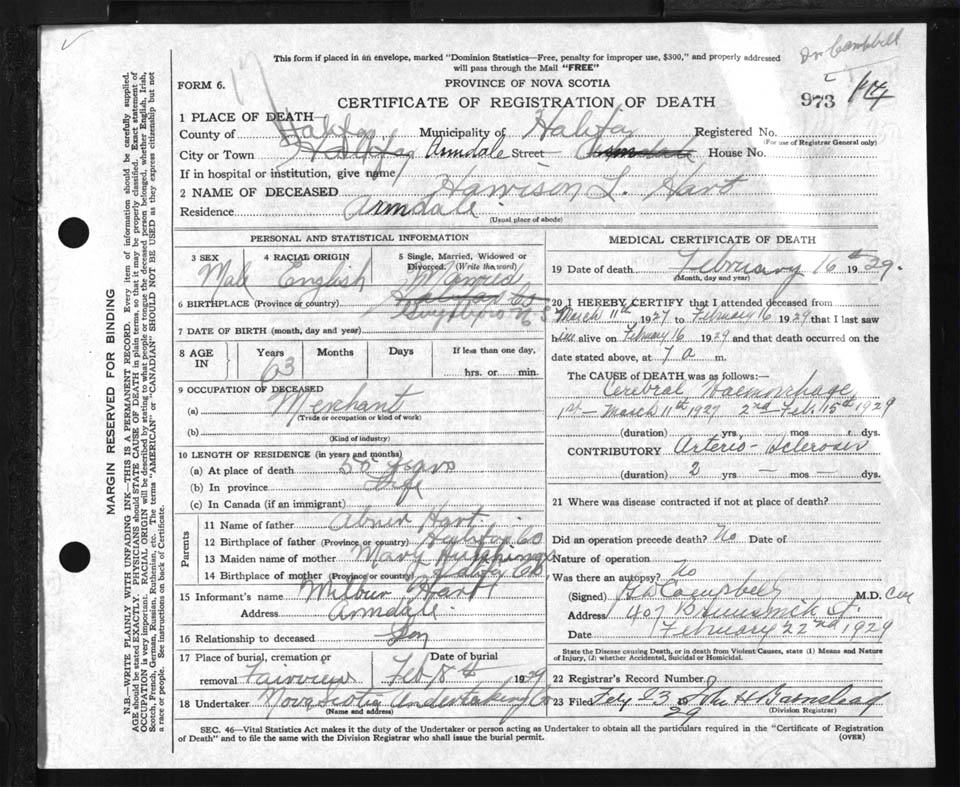 Dr Campbell
This form if placed in an envelope, marked "Dominion Statistics—Free, penalty for improper use, $300," and properly addressed
will pass through the Mail "FREE"
17
FORM 6.
PROVINCE OF NOVA SCOTIA
CERTIFICATE OF REGISTRATION OF DEATH
973
1 PLACE OF DEATH
County of Halifax Municipality of Halifax Registered No.
(For use of Registrar General only)
City or Town Halifax Armdale Street Armdale House No.
If in hospital or institution, give name
2 NAME OF DECEASED Harrison L. Hart
Residence Armdale.
(Usual place of abode)
PERSONAL AND STATISTICAL INFORMATION
3 SEX 4 RACIAL ORIGIN 5 Single, Married, Widowed or
Divorced. (Write the word)
Male English Married
6 BIRTHPLACE (Province or country)
Guysboro N S
7 DATE OF BIRTH (month, day and year)
8 AGE IN Years Months Days If less than one day,
63 hrs. or min.
9 OCCUPATION OF DECEASED
(a) Merchant
(Trade or occupation or kind of work)
(b)
(Kind of industry)
10 LENGTH OF RESIDENCE (in years and months)
(a) At place of death 55 years
(b) In province Life
(c) In Canada (if an immigrant)
Parents
11 Name of father Abner Hart
12 Birthplace of father (Province or country) Halifax Co
13 Maiden name of mother Mary Hutchings
14 Birthplace of mother (Province or country) Halifax Co
15 Informant's name Wilbur Hart
Address Armdale.
16 Relationship to deceased Son
17 Place of burial, cremation or removal Fairview
Date of burial Feb 18th 1929
18 Undertaker Nova Scotia Undertaking Co
(Name and address)
MEDICAL CERTIFICATE OF DEATH
19 Date of death February 16th 1929.
(Month, day and year)
20 I HEREBY CERTIFY that I attended deceased from
March 11th 1927 to February 16 1929 that I last saw
him alive on February 16 1929 and that death occurred on the
date stated above, at 7 a m.
The CAUSE of DEATH was as follows:—
Cerebral Haemorrhage
1st - March 11th 1927 2nd - Feb. 15th 1929
(duration) yrs. mos. dys.
CONTRIBUTORY Arterio-Sclerosis
(duration) 2 yrs. — mos. — dys.
21 Where was disease contracted if not at place of death?
Did an operation precede death? No Date of
Nature of operation
Was there an autopsy? No
(Signed) Campbell M.D.
Address 407 Brunswick St.
Date February 22nd 1929
State the Disease causing Death, or in death from Violent Causes, state (1) Means and Nature
of Injury, (2) whether Accidental, Suicidal or Homicidal.
22 Registrar's Record Number
23 Filed Feby 23 29 John H Barnstead
(Division Registrar)
SEC. 46—Vital Statistics Act makes it the duty of the Undertaker or person acting as Undertaker to obtain all the particulars required in the "Certificate of Registration
of Death" and to file the same with the Division Registrar who shall issue the burial permit.
(OVER)
MARGIN RESERVED FOR BINDING
N.B.—WRITE PLAINLY WITH UNFADING INK—THIS IS A PERMANENT RECORD. Every item of information should be carefully supplied.
AGE should be stated EXACTLY. PHYSICIANS should STATE CAUSE OF DEATH in plain terms, so that it may be properly classified. Exact statement of
OCCUPATION is very important. RACIAL ORIGIN will be described by stating to what people or tongue the deceased person belonged, whether English, Irish,
Scotch, French, German, Russian, Ruthenian, etc. The terms "AMERICAN" or "CANADIAN" SHOULD NOT BE USED as they express citizenship but not
a race or people. See instructions on back of Certificate.